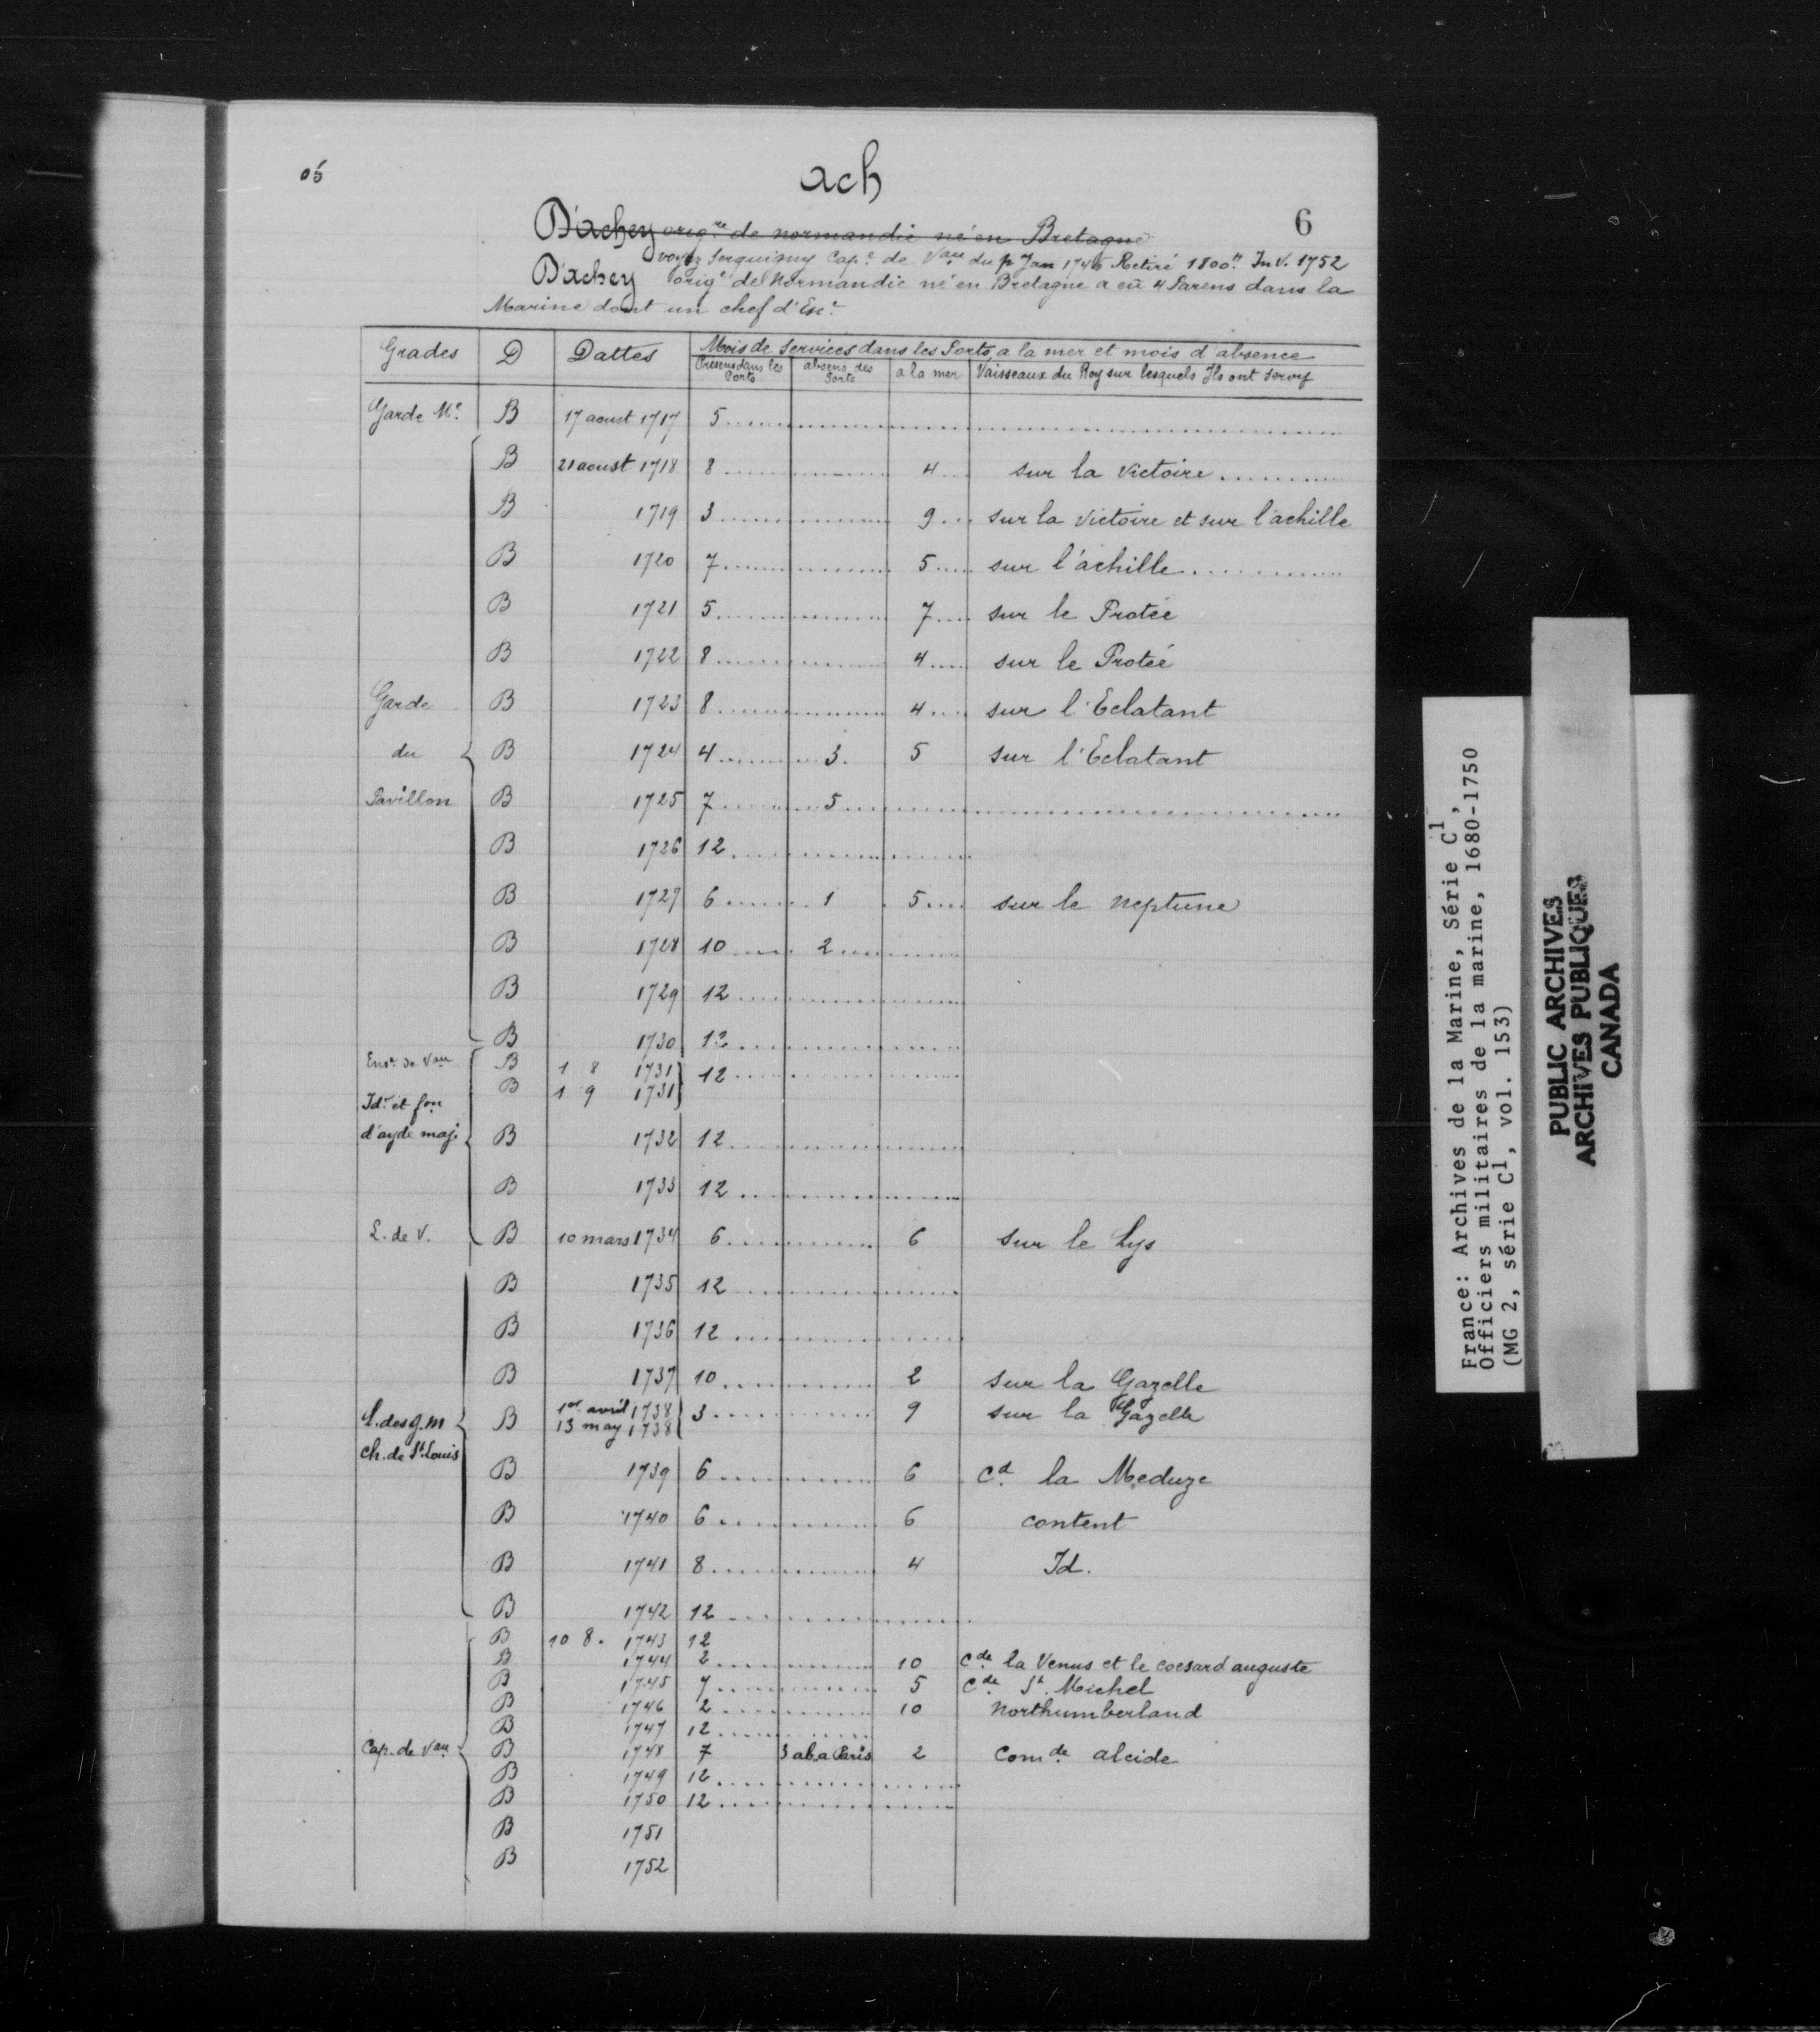 05
ach
6
D'achey orig.re de normandie né en Bretagne
voyez Serquigny Cap.e de Vau. du pr Jan 1746 Retiré 1800.tt Inv. 1752
D'achey orig.e de Normandie né en Bretagne a eû 4 Parens dans la
Marine dont un chef d'Esc.e
Grades D Dattes Mois de Services dans les Ports, a la mer et mois d'absence
Presens dans les Ports absens des Ports a la mer Vaisseaux du Roy sur lesquels Ils ont servy
Garde Me. B 17 aoust 1717 5
B 21 aoust 1718 8 4 sur la Victoire
B 1719 3 9 sur la Victoire et sur l'achille
B 1720 7 5 sur l'achille
B 1721 5 7 sur le Protée
B 1722 8 4 sur le Protée
Garde B 1723 8 4 sur l'Eclatant
du B 1724 4 3. 5 sur l'Eclatant
Pavillon B 1725 7 5
B 1726 12
B 1727 6 1 5 sur le neptune
B 1728 10 2
B 1729 12
B 1730 12
Ens.e de Vau B 1 8 1731 } 12
B 1 9 1731 }
Id.m et fon
d'ayde maj. B 1732 12
B 1733 12
L. de V. B 10 mars 1734 6 6 sur le Lys
B 1735 12
B 1736 12
B 1737 10 2 sur la Gazelle
L. des g. m B 1er avril 1738 } 3 9 sur la Gazelle
13 may 1738
ch. de St. Louis
B 1739 6 6 Cd. la Meduze
B 1740 6 6 content
B 1741 8 4 Id.
B 1742 12
B 10 8. 1743 12
B 1744 2 10 Cde. la Venus et le coesard auguste
B 1745 7 5 Cde. St. Michel
B 1746 2 10 Northumberland
B 1747 12
Cap. de Vau. B 1748 7 3 ab. a Paris 2 Comde. alcide
B 1749 12
B 1750 12
B 1751
B 1752
France: Archives de la Marine, Série C1,
Officiers militaires de la marine, 1680-1750
(MG 2, série C1, vol. 153)
PUBLIC ARCHIVES
ARCHIVES PUBLIQUES
CANADA